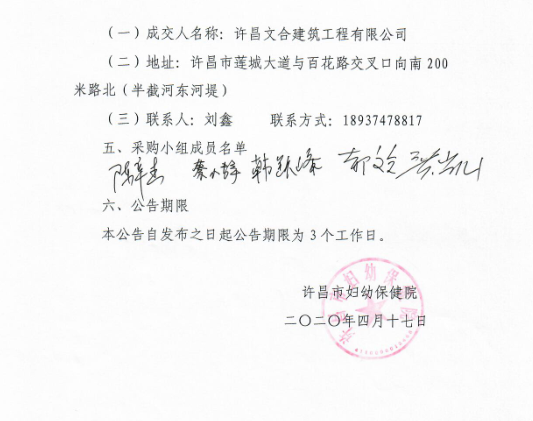 （一）成交人名称：许昌文合建筑工程有限公司
（二）地址：许昌市莲城大道与百花路交叉口向南 200
米路北（半截河东河堤）
（三）联系人：刘鑫 联系方式：18937478817
五、采购小组成员名单
六、公告期限
本公告自发布之日起公告期限为 3 个工作日。
许昌市妇幼保健院
二〇二〇年四月十七日